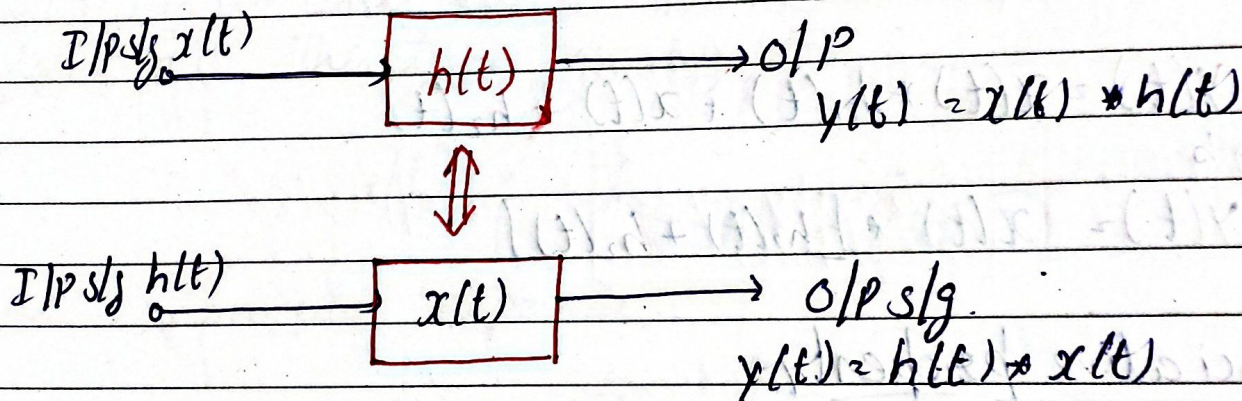 I/p s/g x(t)
h(t)
O/P
y(t) = x(t) * h(t)
I/P s/g h(t)
x(t)
O/P s/g.
y(t) = h(t) * x(t)